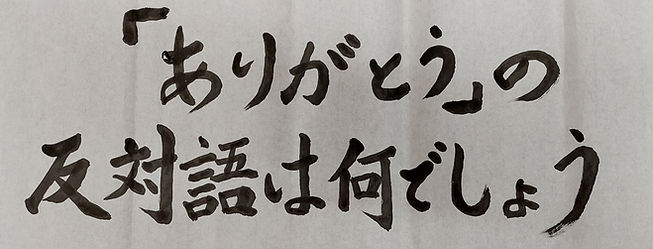 「ありがとう」の
反対語は何でしょう